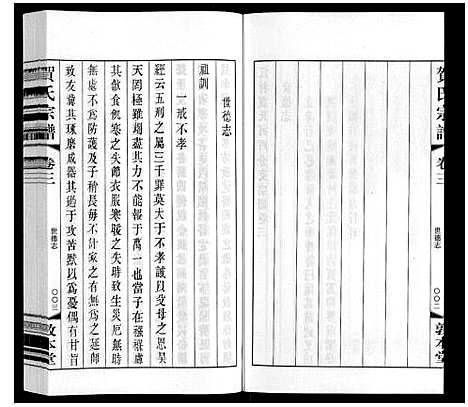 賀氏宗譜
卷三
世德志
〇〇二
敦本堂
世德志
祖訓
一戒不孝
經云五刑之屬三千罪莫大于不孝誠以受母之恩昊
天罔極雖竭盡其力不能報于萬一也當子在襁褓慮
其飲食飢寒之失節衣服寒暖之失時致生災厄無微
無處不為防護及子稍長毋不計家之有無為之延師
致友冀其琢磨成器其過于攻苦獸以為憂偶有甘旨
賀氏宗譜
卷三
世德志
〇〇三
敦本堂